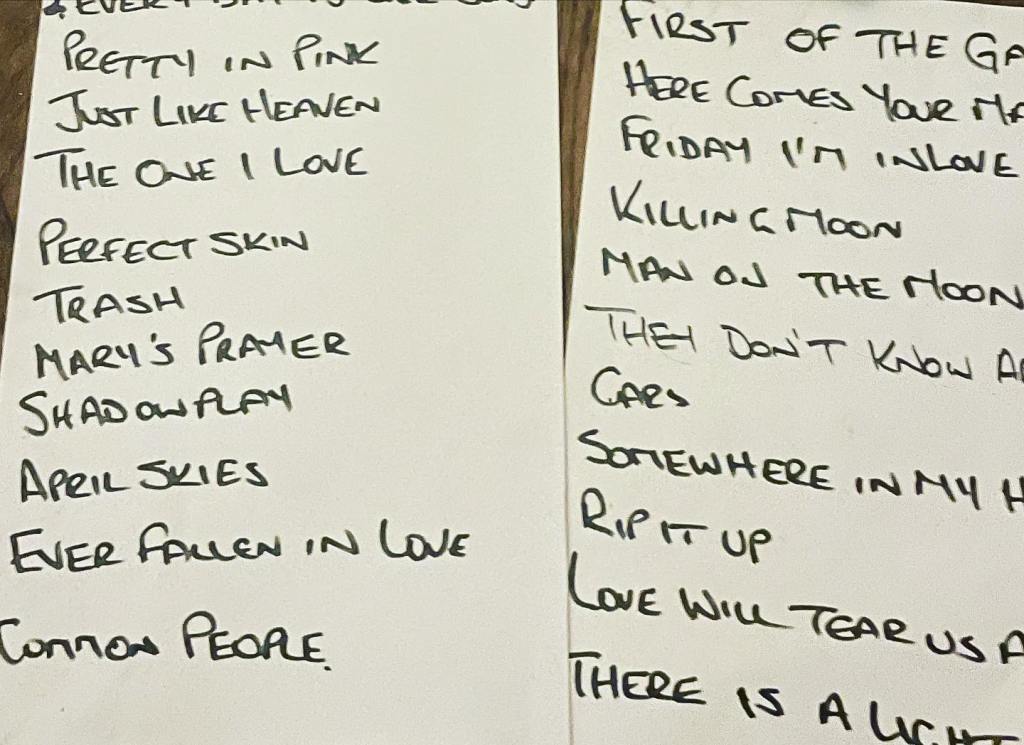 & EVERY DAY IS LIKE SUNDAY
PRETTY IN PINK
JUST LIKE HEAVEN
THE ONE I LOVE
PERFECT SKIN
TRASH
MARY'S PRAYER
SHADOWPLAY
APRIL SKIES
EVER FALLEN IN LOVE
COMMON PEOPLE.
FIRST OF THE GA
HERE COMES YOUR MA
FRIDAY I'M INLOVE
KILLING MOON
MAN ON THE MOON
THEY DON'T KNOW A
CARS
SOMEWHERE IN MY H
RIP IT UP
LOVE WILL TEAR US A
THERE IS A LIGHT